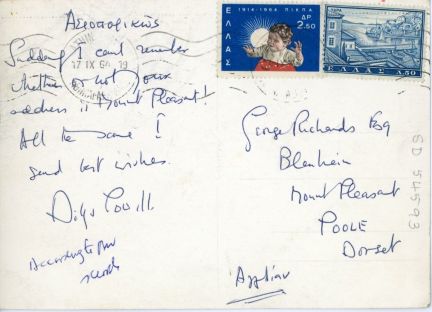 Ἀεροπορικῶς
Suddenly I can't remember
whether or not your
address is Mount Pleasant!
All the same!
Send best wishes.
Dilys Powell
According to your
17 IX 64 19
1914-1964 ΠΙΚΠΑ
ΔΡ
2.50
ΕΛΛΑΣ
ΕΛΛΑΣ
George Richards Esq
Blenheim
Mount Pleasant
POOLE
Dorset
Ἀγγλίαν
SD 54593